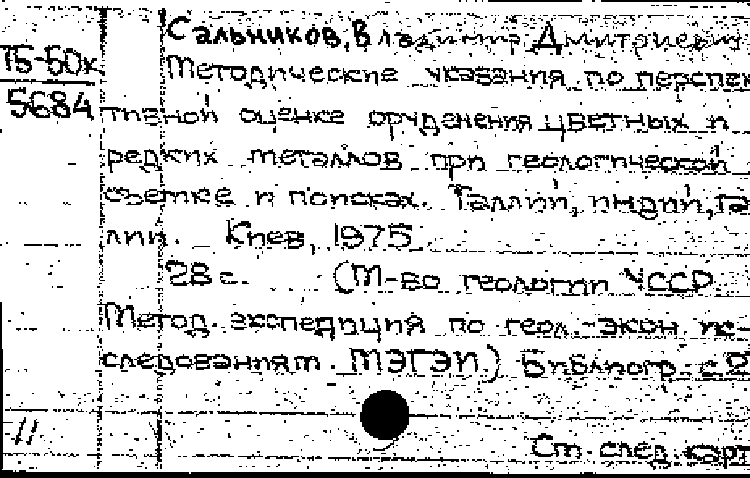 Сальников, Владимир Дмитриевич
ТБ-50к
Методические указания по перспек
5684
тивной оценке оруденения цветных и
редких металлов при геологической
съемке и поисках. Таллий, индий, га
лий. Киев, 1975.
28 с. (М-во геологии УССР.
Метод. экспедиция по геол.-экон. ис-
следованиям. МЭГЭИ.) Библиогр. с 2
11
См. след. карт